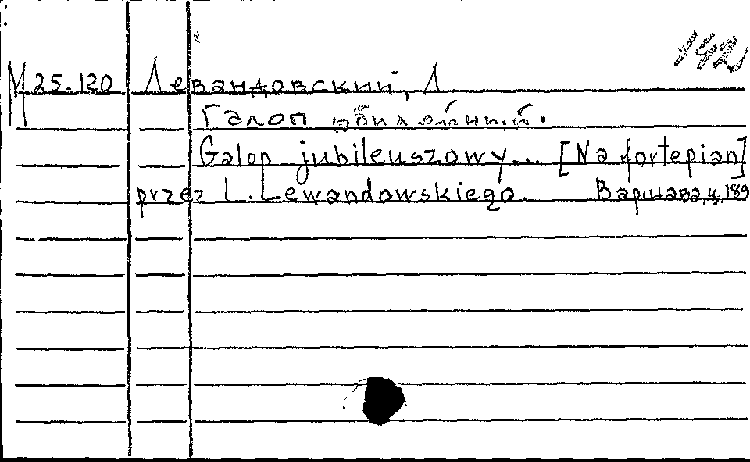 142
М 25.120 Левандовский, Л
Галоп юбилейный.
Galop jubileuszowy... [Na fortepian]
przez L. Lewandowskiego. Варшава, ц, 189